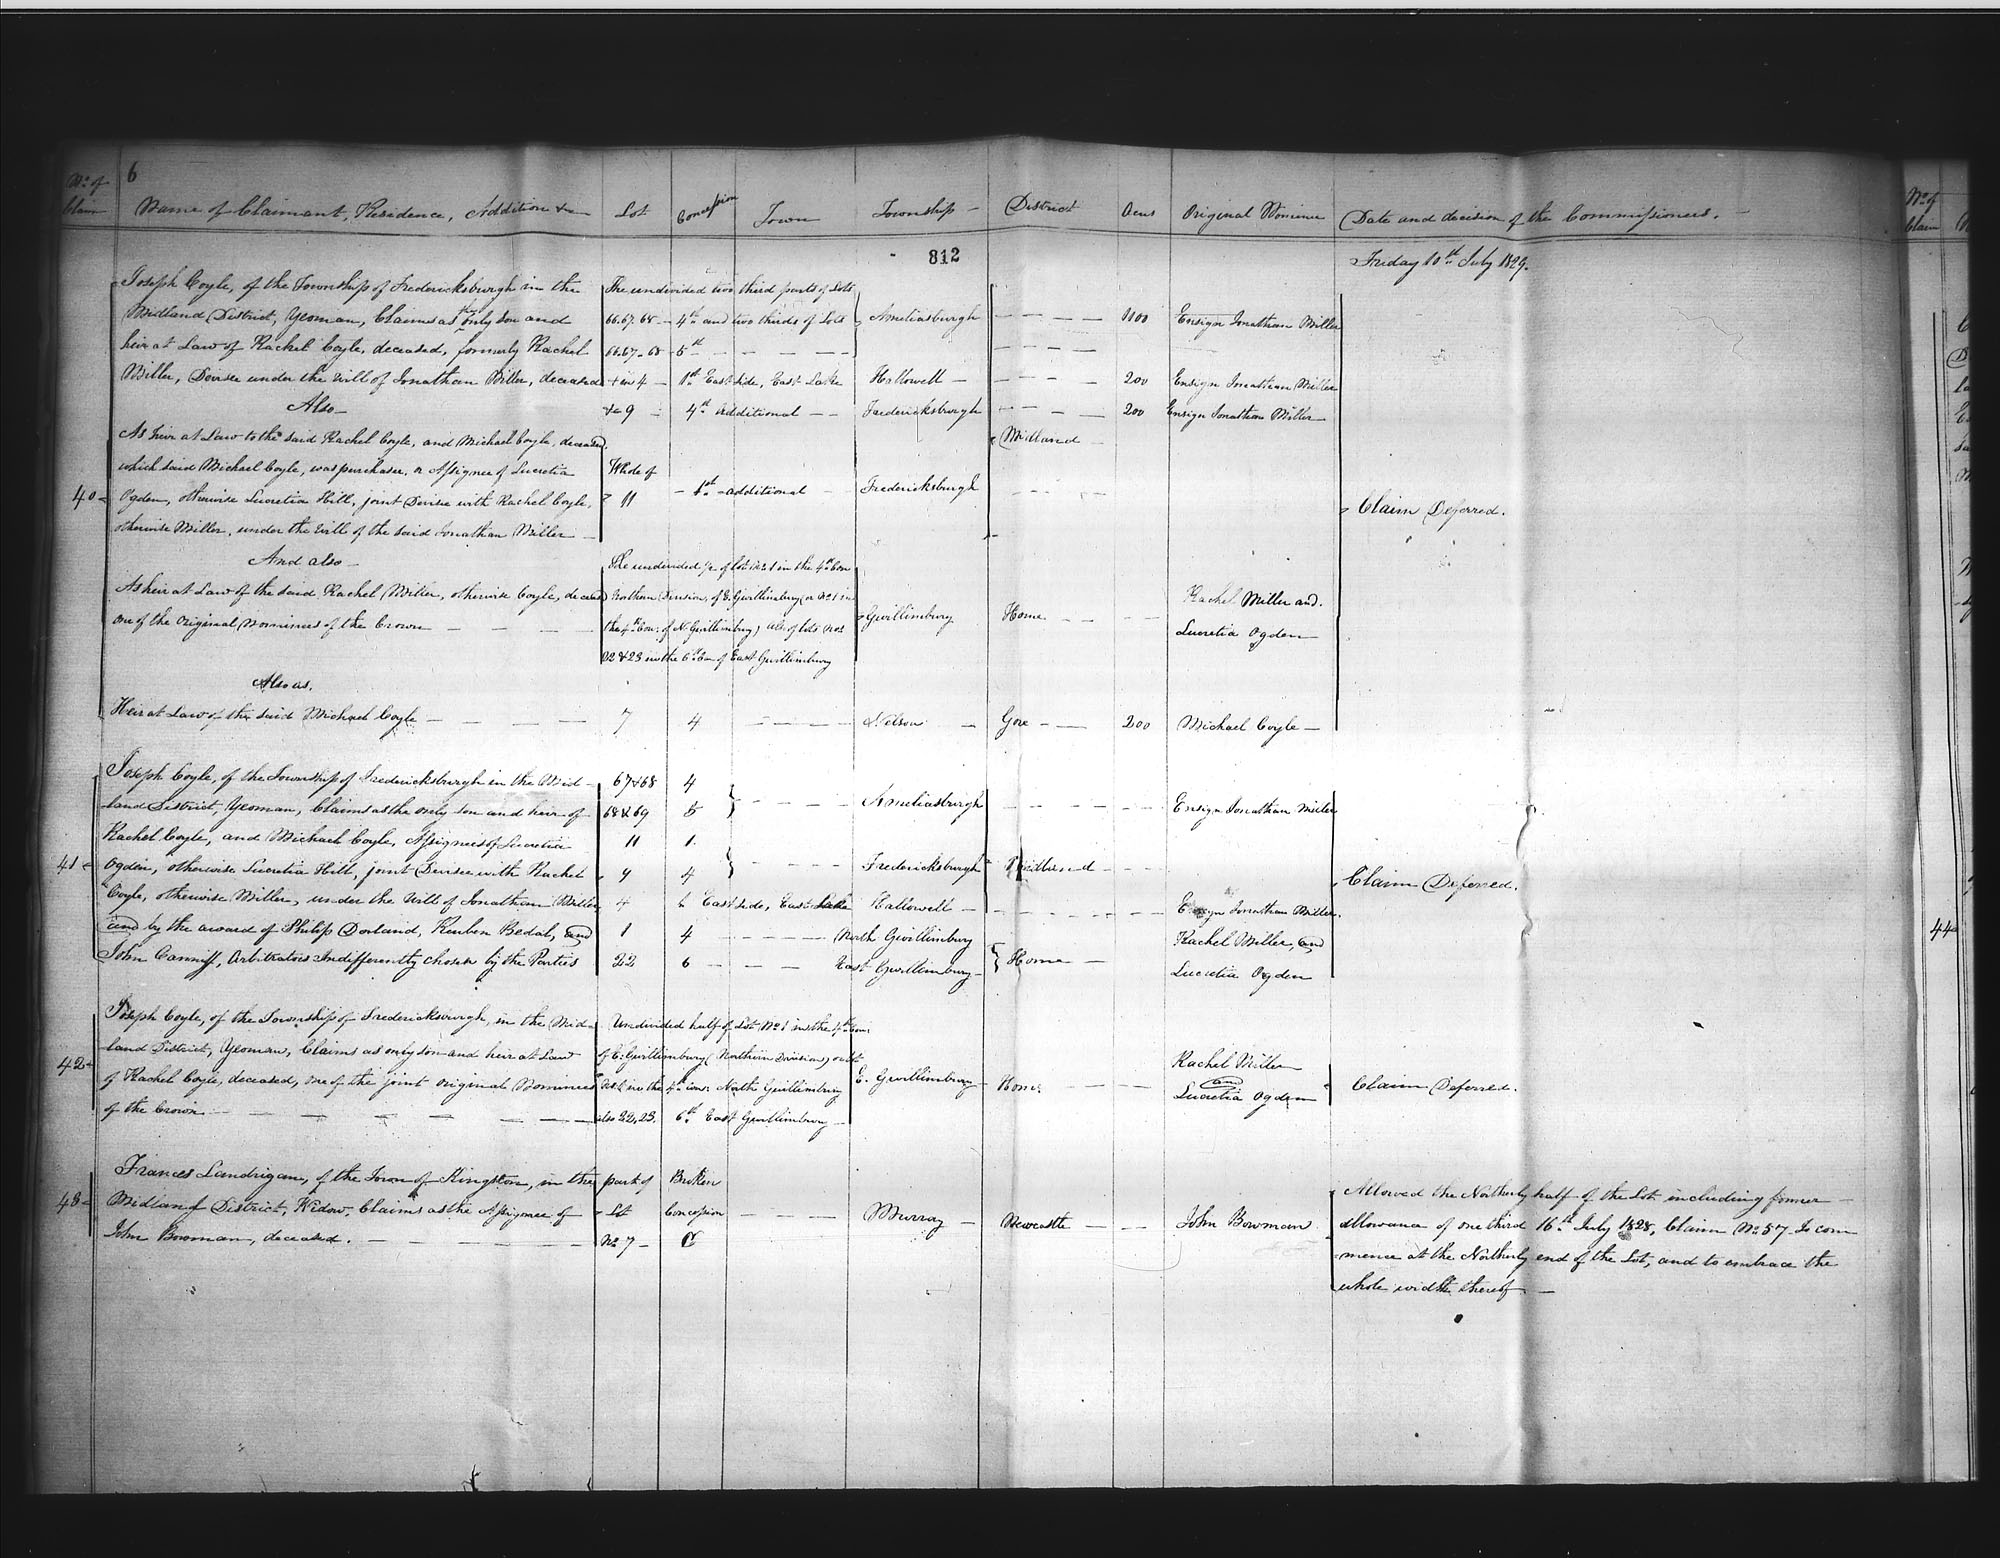 6
No. of Claim
Name of Claimant, Residence, Addition &c
Lot
Concession
Town
Township
District
Acres
Original Nominee
Date and decision of the Commissioners.
812
Friday 10th July 1829.
40
Joseph Coyle, of the Township of Fredericksburgh in the
Midland District, Yeoman, Claims as the only son and
heir at Law of Rachel Coyle, deceased, formerly Rachel
Miller, Devisee under the will of Jonathan Miller, deceased
Also
As heir at Law to the said Rachel Coyle, and Michael Coyle, deceased,
which said Michael Coyle, was purchaser, or Assignee of Lucretia
Ogden, otherwise Lucretia Hill, joint Devisee with Rachel Coyle,
otherwise Miller, under the Will of the said Jonathan Miller
And also
As heir at Law of the said Rachel Miller, otherwise Coyle, deceased
one of the Original Nominees of the Crown
Also as.
Heir at Law of the said Michael Coyle
The undivided two third parts of Lots
66.67.68 4th and two thirds of Lots
66.67.68 5th
4 1st East side, East Lake
9 4th additional
Whole of
11 1st additional
The undivided 1/2 of lot No 1 in the 4th Con
Northern Division, of E. Gwillimbury (or No 1 in
the 4th Con: of N. Gwillimbury) also of lots Nos
22 & 23 in the 6th Con of East Gwillimbury
7 4
Ameliasburgh
Hallowell
Fredericksburgh
Fredericksburgh
Gwillimbury
Nelson
Midland
Home
Gore
200
200
200
Ensign Jonathan Miller
Ensign Jonathan Miller
Ensign Jonathan Miller
Rachel Miller and
Lucretia Ogden
Michael Coyle
Claim Deferred.
41
Joseph Coyle, of the Township of Fredericksburgh in the Mid-
land District, Yeoman, Claims as the only son and heir of
Rachel Coyle, and Michael Coyle, Assignees of Lucretia
Ogden, otherwise Lucretia Hill, joint Devisee with Rachel
Coyle, otherwise Miller, under the Will of Jonathan Miller
and by the award of Philip Dorland, Reuben Bedal, and
John Canniff, Arbitrators Indifferently chosen by the Parties
67 & 68 4
68 & 69 5
11 1
9 4
4 East side, East Lake
1 4
22 6
Ameliasburgh
Fredericksburgh
Hallowell
North Gwillimbury
East Gwillimbury
Midland
Home
Ensign Jonathan Miller
Ensign Jonathan Miller.
Rachel Miller, and
Lucretia Ogden
Claim Deferred.
42
Joseph Coyle, of the Township of Fredericksburgh, in the Mid-
land District, Yeoman, Claims as only son and heir at Law
of Rachel Coyle, deceased, one of the joint original Nominees
of the Crown
Undivided half of Lot No 1 in the 4th Con:
of E. Gwillimbury (Northern Division)
in the 4th con: North Gwillimbury
also 22, 23. 6th East Gwillimbury
E. Gwillimbury
Home
Rachel Miller
and
Lucretia Ogden
Claim Deferred.
43
Frances Landrigan, of the Town of Kingston, in the
Midland District, Widow, Claims as the Assignee of
John Bowman, deceased.
part of
Lot
No 7
Broken
Concession
C
Murray
Newcastle
John Bowman
Allowed the Northerly half of the Lot, including former
allowance of one third 16th July 1828, Claim No. 57 to com
mence at the Northerly end of the Lot, and to embrace the
whole width thereof
No. of
Claim
44